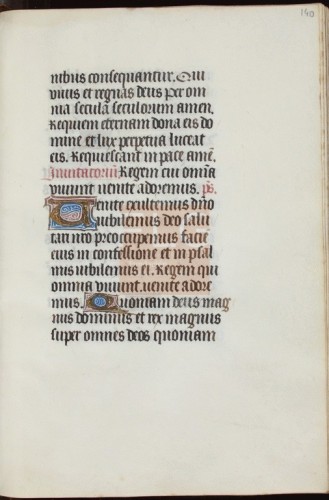 140
nibus consequantur. Qui
vivis et regnas deus per om
nia secula seculorum amen.
Requiem eternam dona eis do
mine et lux perpetua luceat
eis. Requiescant in pace amē.
Invitatoriū Regem cui omīa
vivunt venite adoremus. ps.
Venite exultemus dño
iubilemus deo salu
tari nrō preoccupemus faciē
eius in confessione et in psal
mis iubilemus ei. Regem cui
omnia vivunt. venite adore
mus. Quoniam deus mag
nus dominus et rex magnus
super omnes deos quoniam